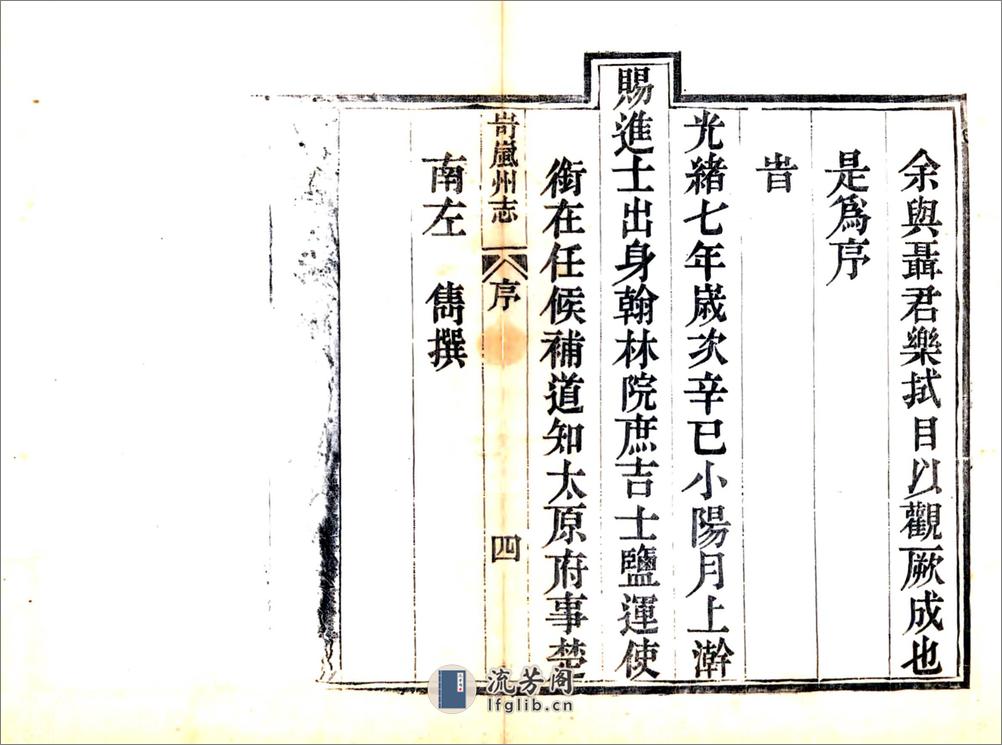 余與聶君樂拭目以觀厥成也
是爲序
旹
光緒七年歲次辛巳小陽月上澣
賜進士出身翰林院庶吉士鹽運使
銜在任候補道知太原府事楚
岢嵐州志 序 四
南左 雋撰
流芳阁
lfglib.cn